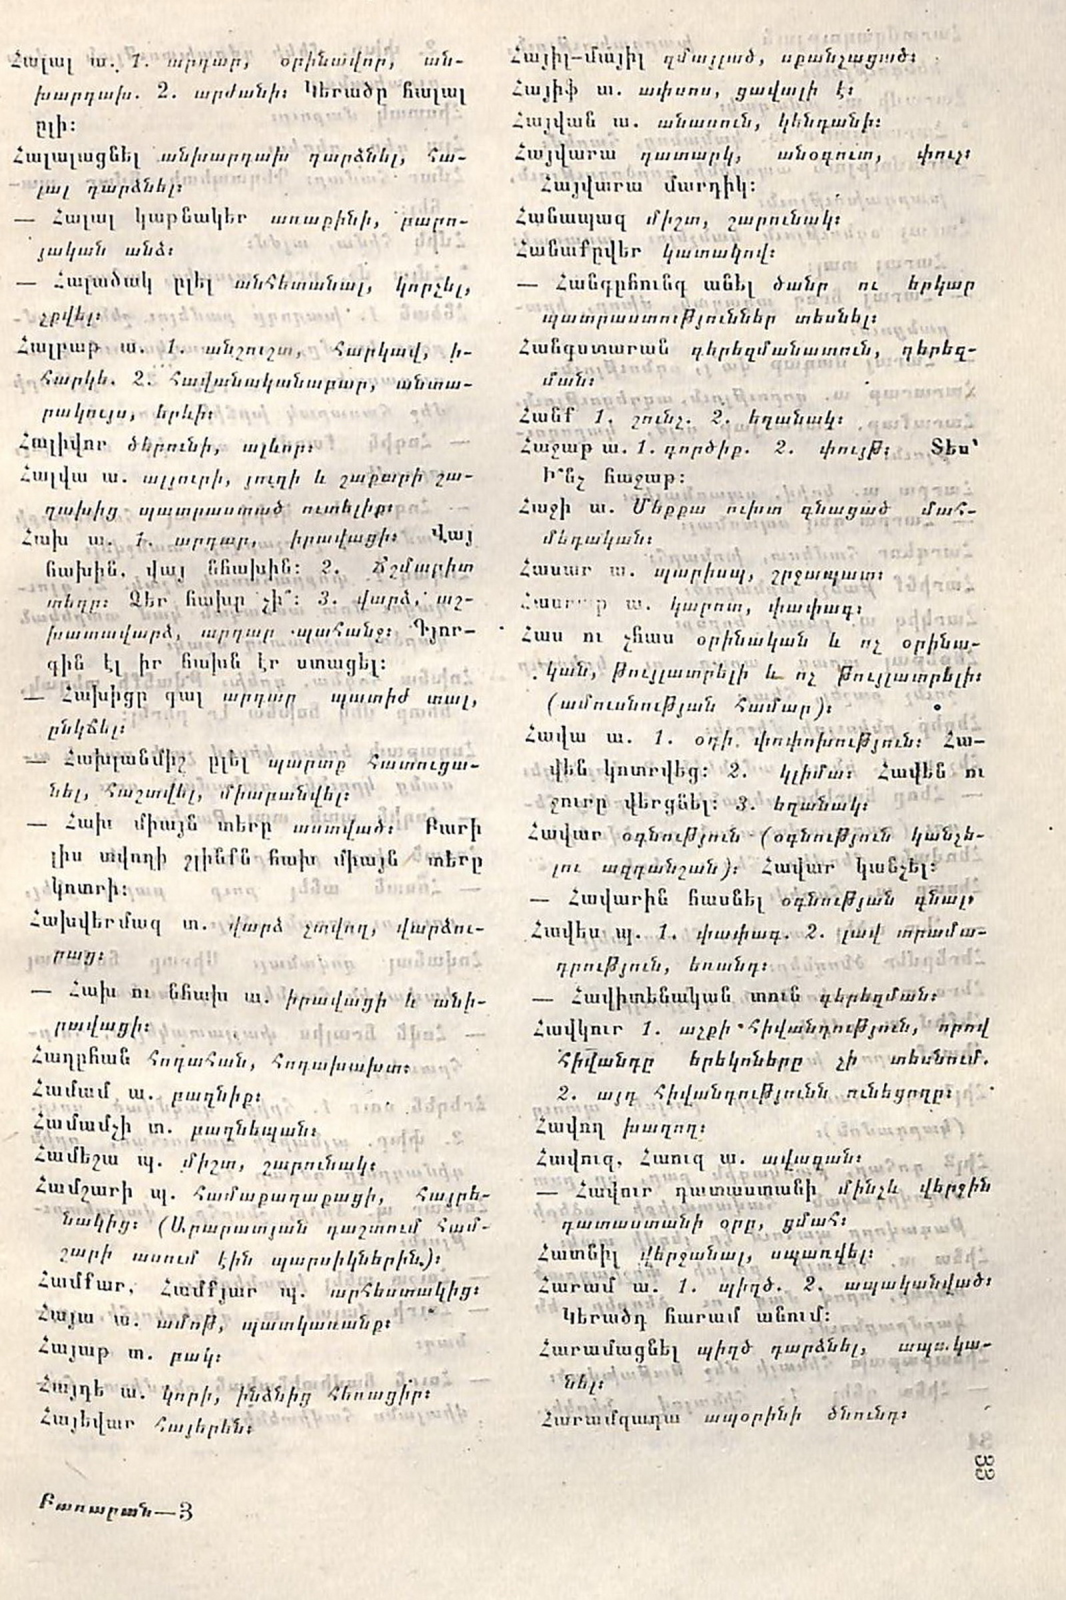 Հալալ ա. 1. արդար, օրինավոր, ան-
խարդախ. 2. արժանի։ Կերածը հալալ
ըլի։
Հալալացնել անխարդախ դարձնել, հա-
լալ դարձնել։
— Հալալ կաթնակեր առաքինի, բարո-
յական անձ։
— Հալածակ ըլել անհետանալ, կորչել,
չքվել։
Հալբաթ ա. 1. անշուշտ, հարկավ, ի-
հարկե. 2. հավանականաբար, անտա-
րակույս, երևի։
Հալիվոր ծերունի, ալևոր։
Հալվա ա. ալյուրի, յուղի և շաքարի շա-
ղախից պատրաստած ուտելիք։
Հախ ա. 1. արդար, իրավացի։ Վայ
հախին, վայ նհախին։ 2. ճշմարիտ
տեղը։ Ձեր հախը չի՞։ 3. վարձ, աշ-
խատավարձ, արդար պահանջ։ Գյոր-
գին էլ իր հախն էր ստացել։
— Հախիցը գալ արդար պատիժ տալ,
ընկճել։
— Հախլանմիշ ըլել պարտք հատուցա-
նել, հաշտվել, միաբանվել։
— Հախ միայն տերը աստված։ Բարի
լիս տվողի շլինքն հախ միայն տերը
կոտրի։
Հախվերմազ տ. վարձ չտվող, վարձու-
րաց։
— Հախ ու նհախ ա. իրավացի և անի-
րավացի։
Հաղըհան հողահան, հողախախտ։
Համամ ա. բաղնիք։
Համամչի տ. բաղնեպան։
Համեշա պ. միշտ, շարունակ։
Համշարի պ. համաքաղաքացի, հայրե-
նակից։ (Արարատյան դաշտում համ-
շարի ասում էին պարսիկներին)։
Համքար, Համքյար պ. արհեստակից։
Հայա ա. ամոթ, պատկառանք։
Հայաթ տ. բակ։
Հայդե ա. կորի, ինձնից հեռացիր։
Հայեվար հայերեն։
Բառարան—3
Հայիլ-մայիլ զմայլած, սքանչացած։
Հայիֆ ա. ափսոս, ցավալի է։
Հայվան ա. անասուն, կենդանի։
Հայվարա դատարկ, անօգուտ, փուչ։
Հայվարա մարդիկ։
Հանապազ միշտ, շարունակ։
Հանաքըվեր կատակով։
— Հանգըհունգ անել ծանր ու երկար
պատրաստություններ տեսնել։
Հանգստարան գերեզմանատուն, գերեզ-
ման։
Հանք 1. շունչ. 2. եղանակ։
Հաջաթ ա. 1. գործիք. 2. փույթ։ Տես՝
Ի՞նչ հաջաթ։
Հաջի ա. Մեքքա ուխտ գնացած մահ-
մեդական։
Հասար ա. պարիսպ, շրջապատ։
ա. կարոտ, փափագ։
Հաս ու չհաս օրինական և ոչ օրինա-
կան, թույլատրելի և ոչ թույլատրելի։
(ամուսնության համար)։
Հավա ա. 1. օդի փոփոխություն։ Հա-
վեն կոտրվեց։ 2. կլիմա։ Հավեն ու
ջուրը վերցնել։ 3. եղանակ։
Հավար օգնություն (օգնություն կանչե-
լու ազդանշան)։ Հավար կանչել։
— Հավարին հասնել օգնության գնալ։
Հավես պ. 1. փափագ. 2. լավ տրամա-
դրություն, եռանդ։
— Հավիտենական տուն գերեզման։
Հավկուր 1. աչքի հիվանդություն, որով
հիվանդը երեկոները չի տեսնում.
2. այդ հիվանդությունն ունեցողը։
Հավող խաղող։
Հավուզ, Հաուզ ա. ավազան։
— Հավուր դատաստանի մինչև վերջին
դատաստանի օրը, ցմահ։
Հատնիլ վերջանալ, սպառվել։
Հարամ ա. 1. պիղծ. 2. ապականված։
Կերածդ հարամ անում։
Հարամացնել պիղծ դարձնել, ապակա-
նել։
Հարամզադա ապօրինի ծնունդ։
33